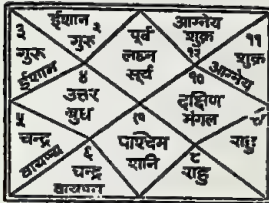 ३ गुरु ईशान
ईशान गुरु २
पूर्व लग्न सूर्य १
आग्नेय शुक्र १२
११ शुक्र आग्नेय
४ उत्तर बुध
१० दक्षिण मंगल
५ चन्द्र वायव्य
६ चन्द्र वायव्य
पश्चिम शनि
राहु
८ राहु